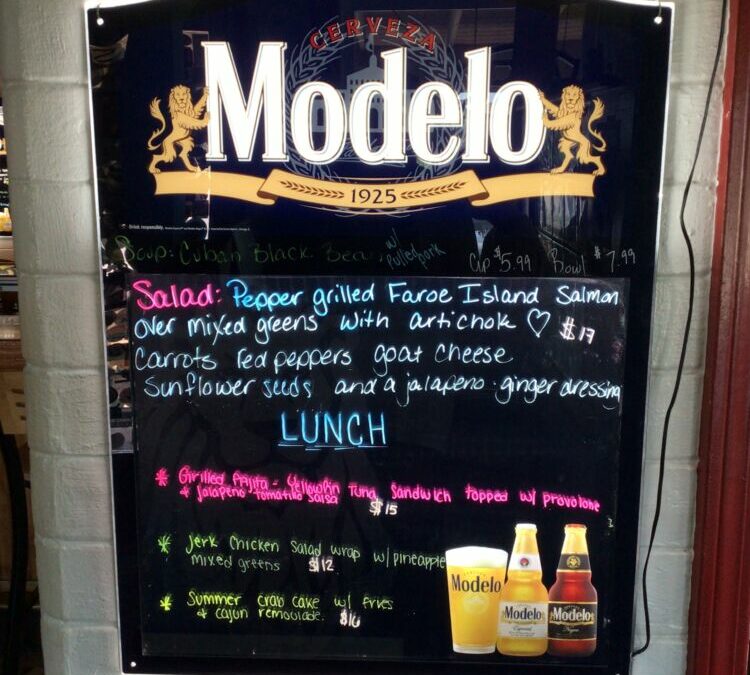 CERVEZA
Modelo
1925
Drink responsibly.
Soup: Cuban Black Bean w/ Pulled pork Cup $5.99 Bowl $7.99
Salad: Pepper grilled Faroe Island Salmon
over mixed greens with artichok ♡ $17
Carrots red peppers goat cheese
Sunflower seeds and a jalapeno ginger dressing
LUNCH
* Grilled Fajita - Yellowfin Tuna Sandwich topped w/ provolone
+ jalapeno tomatillo salsa $15
* Jerk Chicken Salad wrap w/ pineapple
mixed greens $12
* Summer crab cake w/ fries
+ cajun remoulade.
Modelo
Modelo
Especial
Modelo
Negra